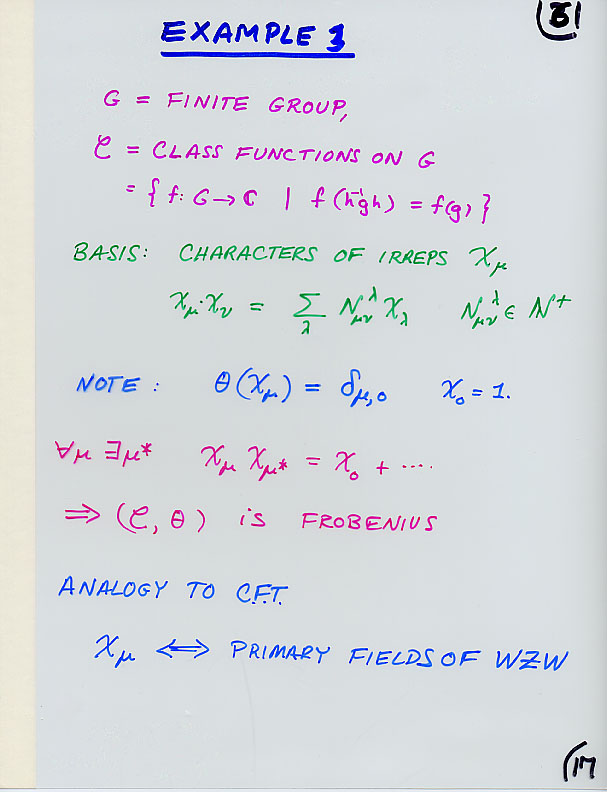 31
EXAMPLE 3
G = FINITE GROUP,
C = CLASS FUNCTIONS ON G
= { f: G → C | f(h⁻¹gh) = f(g) }
BASIS: CHARACTERS OF IRREPS χ_μ
χ_μ·χ_ν = Σ_λ N_{μν}^λ χ_λ N_{μν}^λ ∈ N⁺
NOTE: θ(χ_μ) = δ_{μ,0} χ_0 = 1.
∀μ ∃μ* χ_μ χ_{μ*} = χ_0 + ····
⇒ (C, θ) is FROBENIUS
ANALOGY TO C.F.T.
χ_μ ⇔ PRIMARY FIELDS OF WZW
17